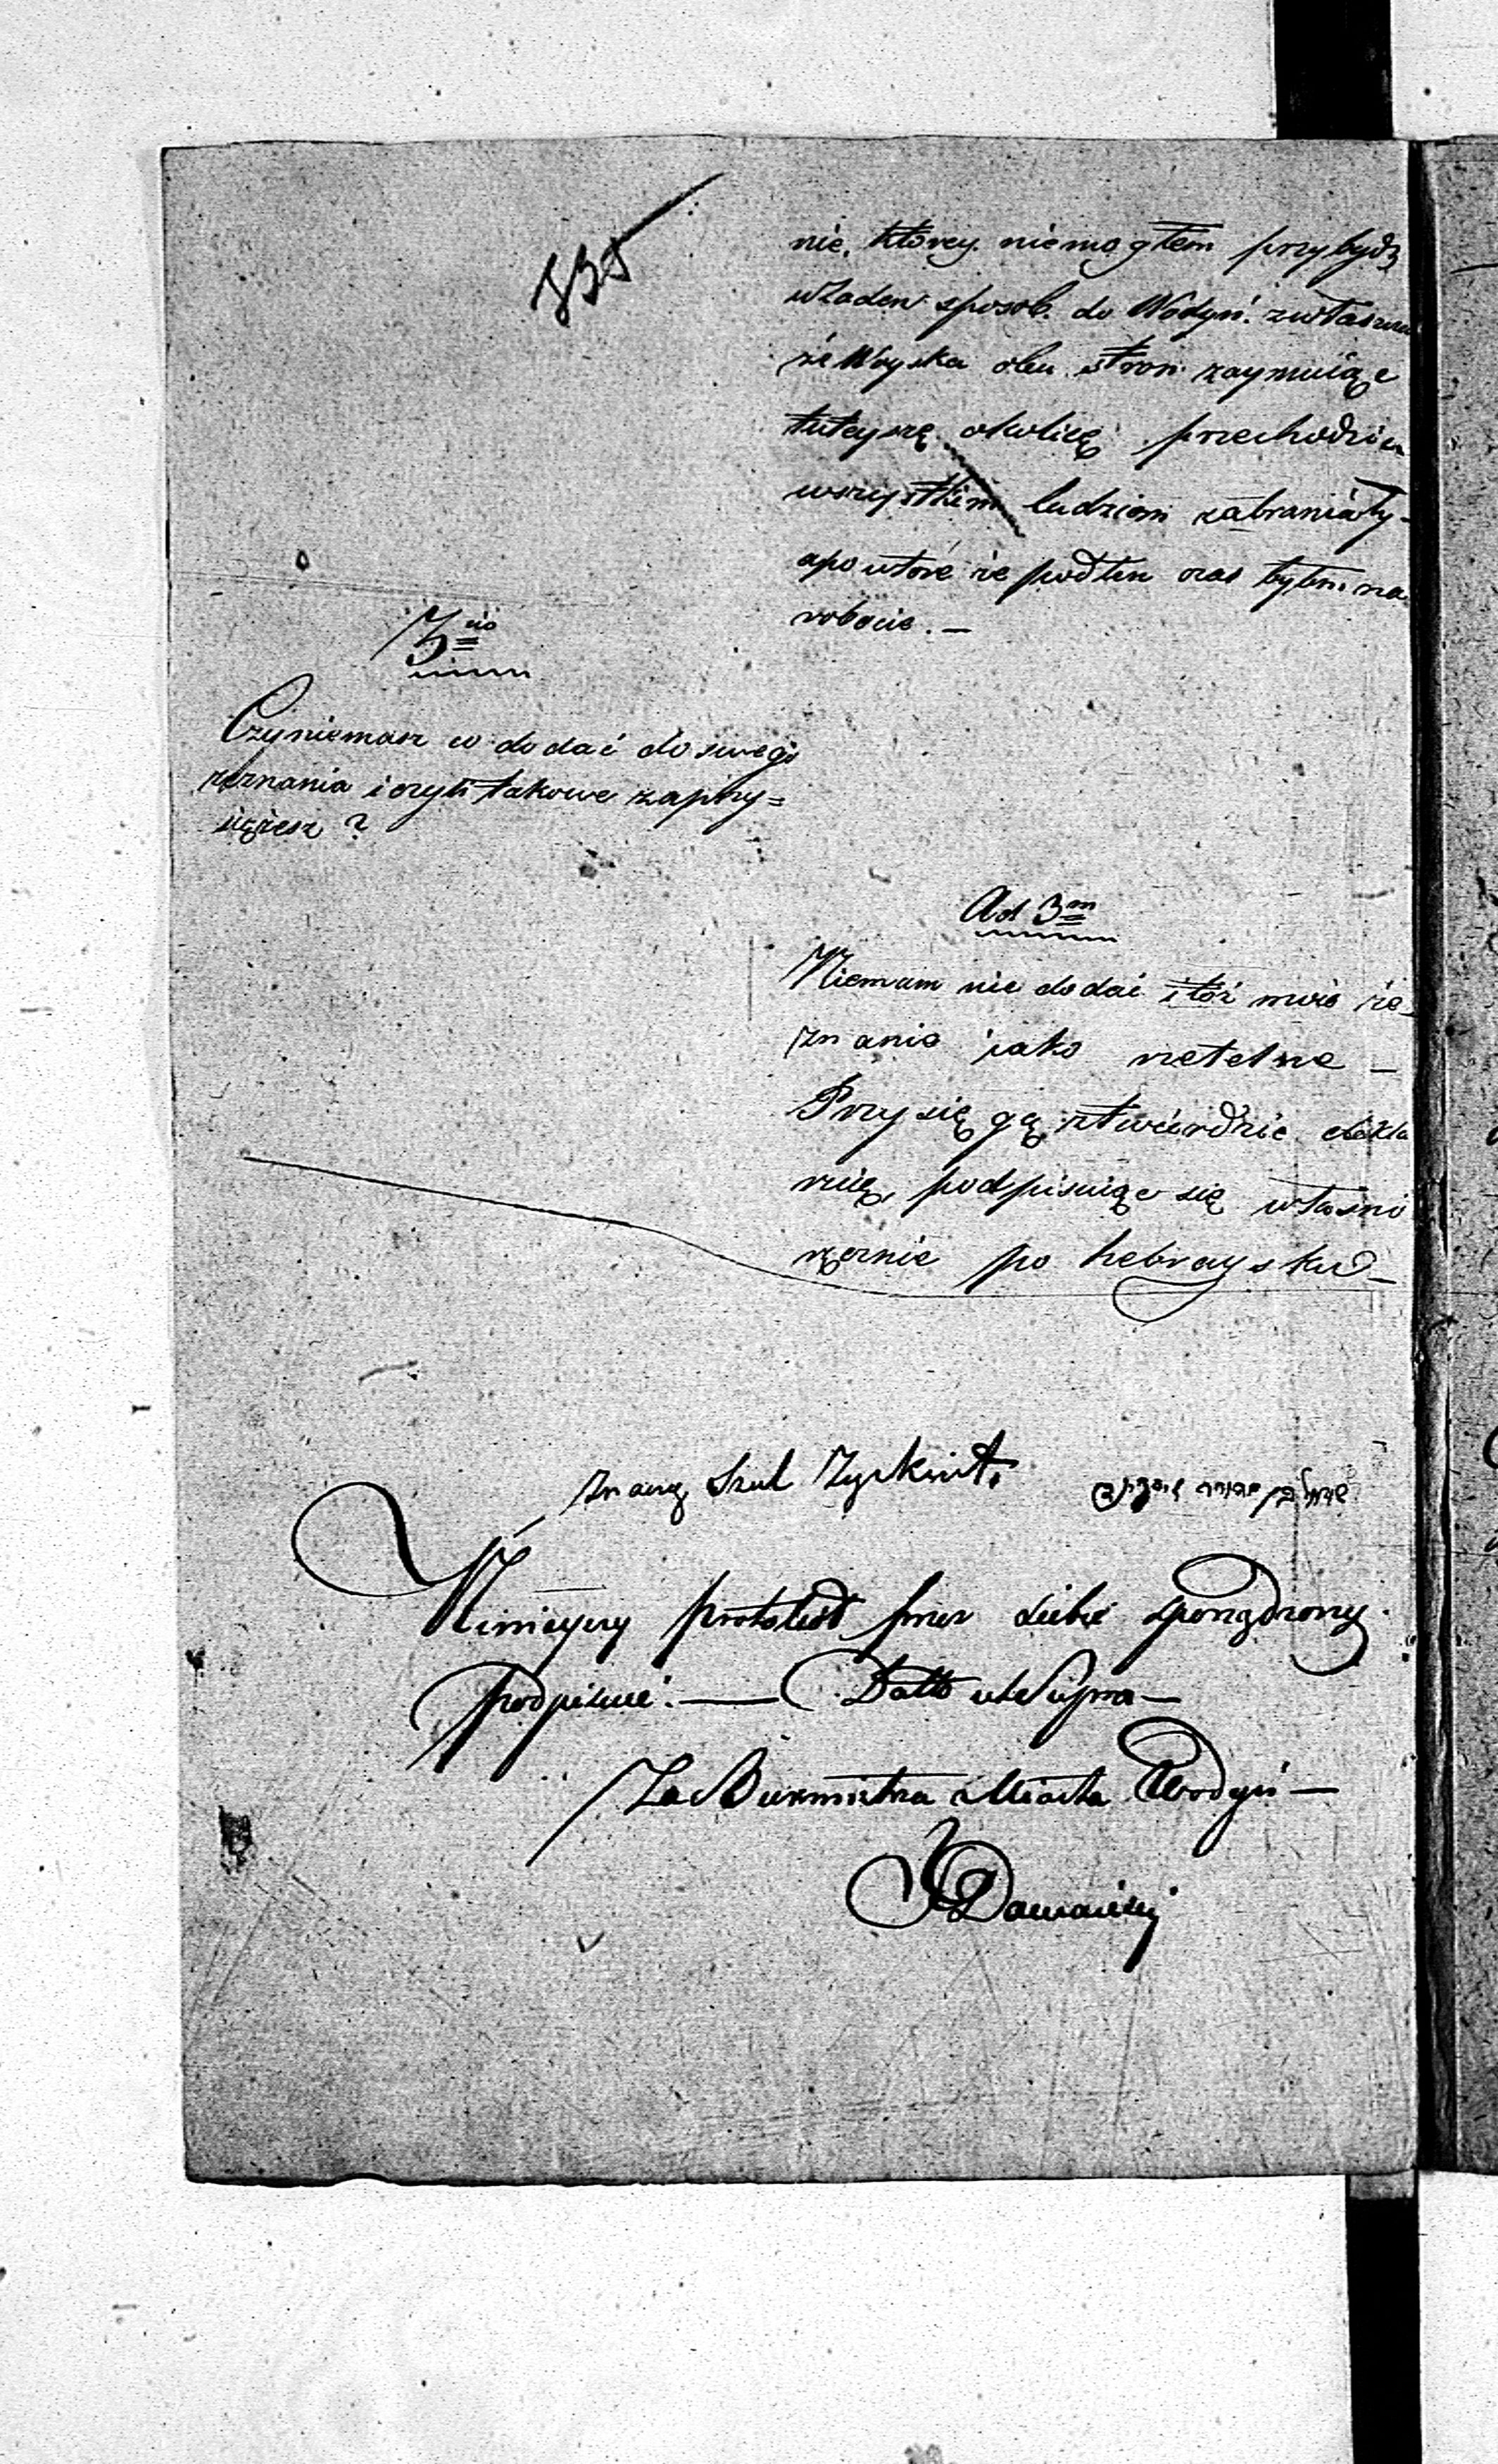 835
nie, ktorey niemogłem przybydź
wżaden sposob do Wodyń. zwłaszcza
że Woyska obu stron zaymuiące
tuteyszę okolicę przechodzić
wszystkim ludziom zabraniały
apowtóre że podten czas byłem na
robocie. —
3cio
Czyniemasz co dodać do swego
zeznania i czyli takowe zaprzy=
siężesz ?
Ad 3m
Niemam nic dodać i też moie ze-
znanie iako rzetelne —
Przysięgą ztwierdzić dekla
ruię, podpisuiąc się własno
ręcznie po hebraysku —
znaczy Szul
Ninieyszy protokuł przez siebie sporządzony
podpisuie. — Datto ut Supra —
Za Burmistrza Miasta Wodyń —